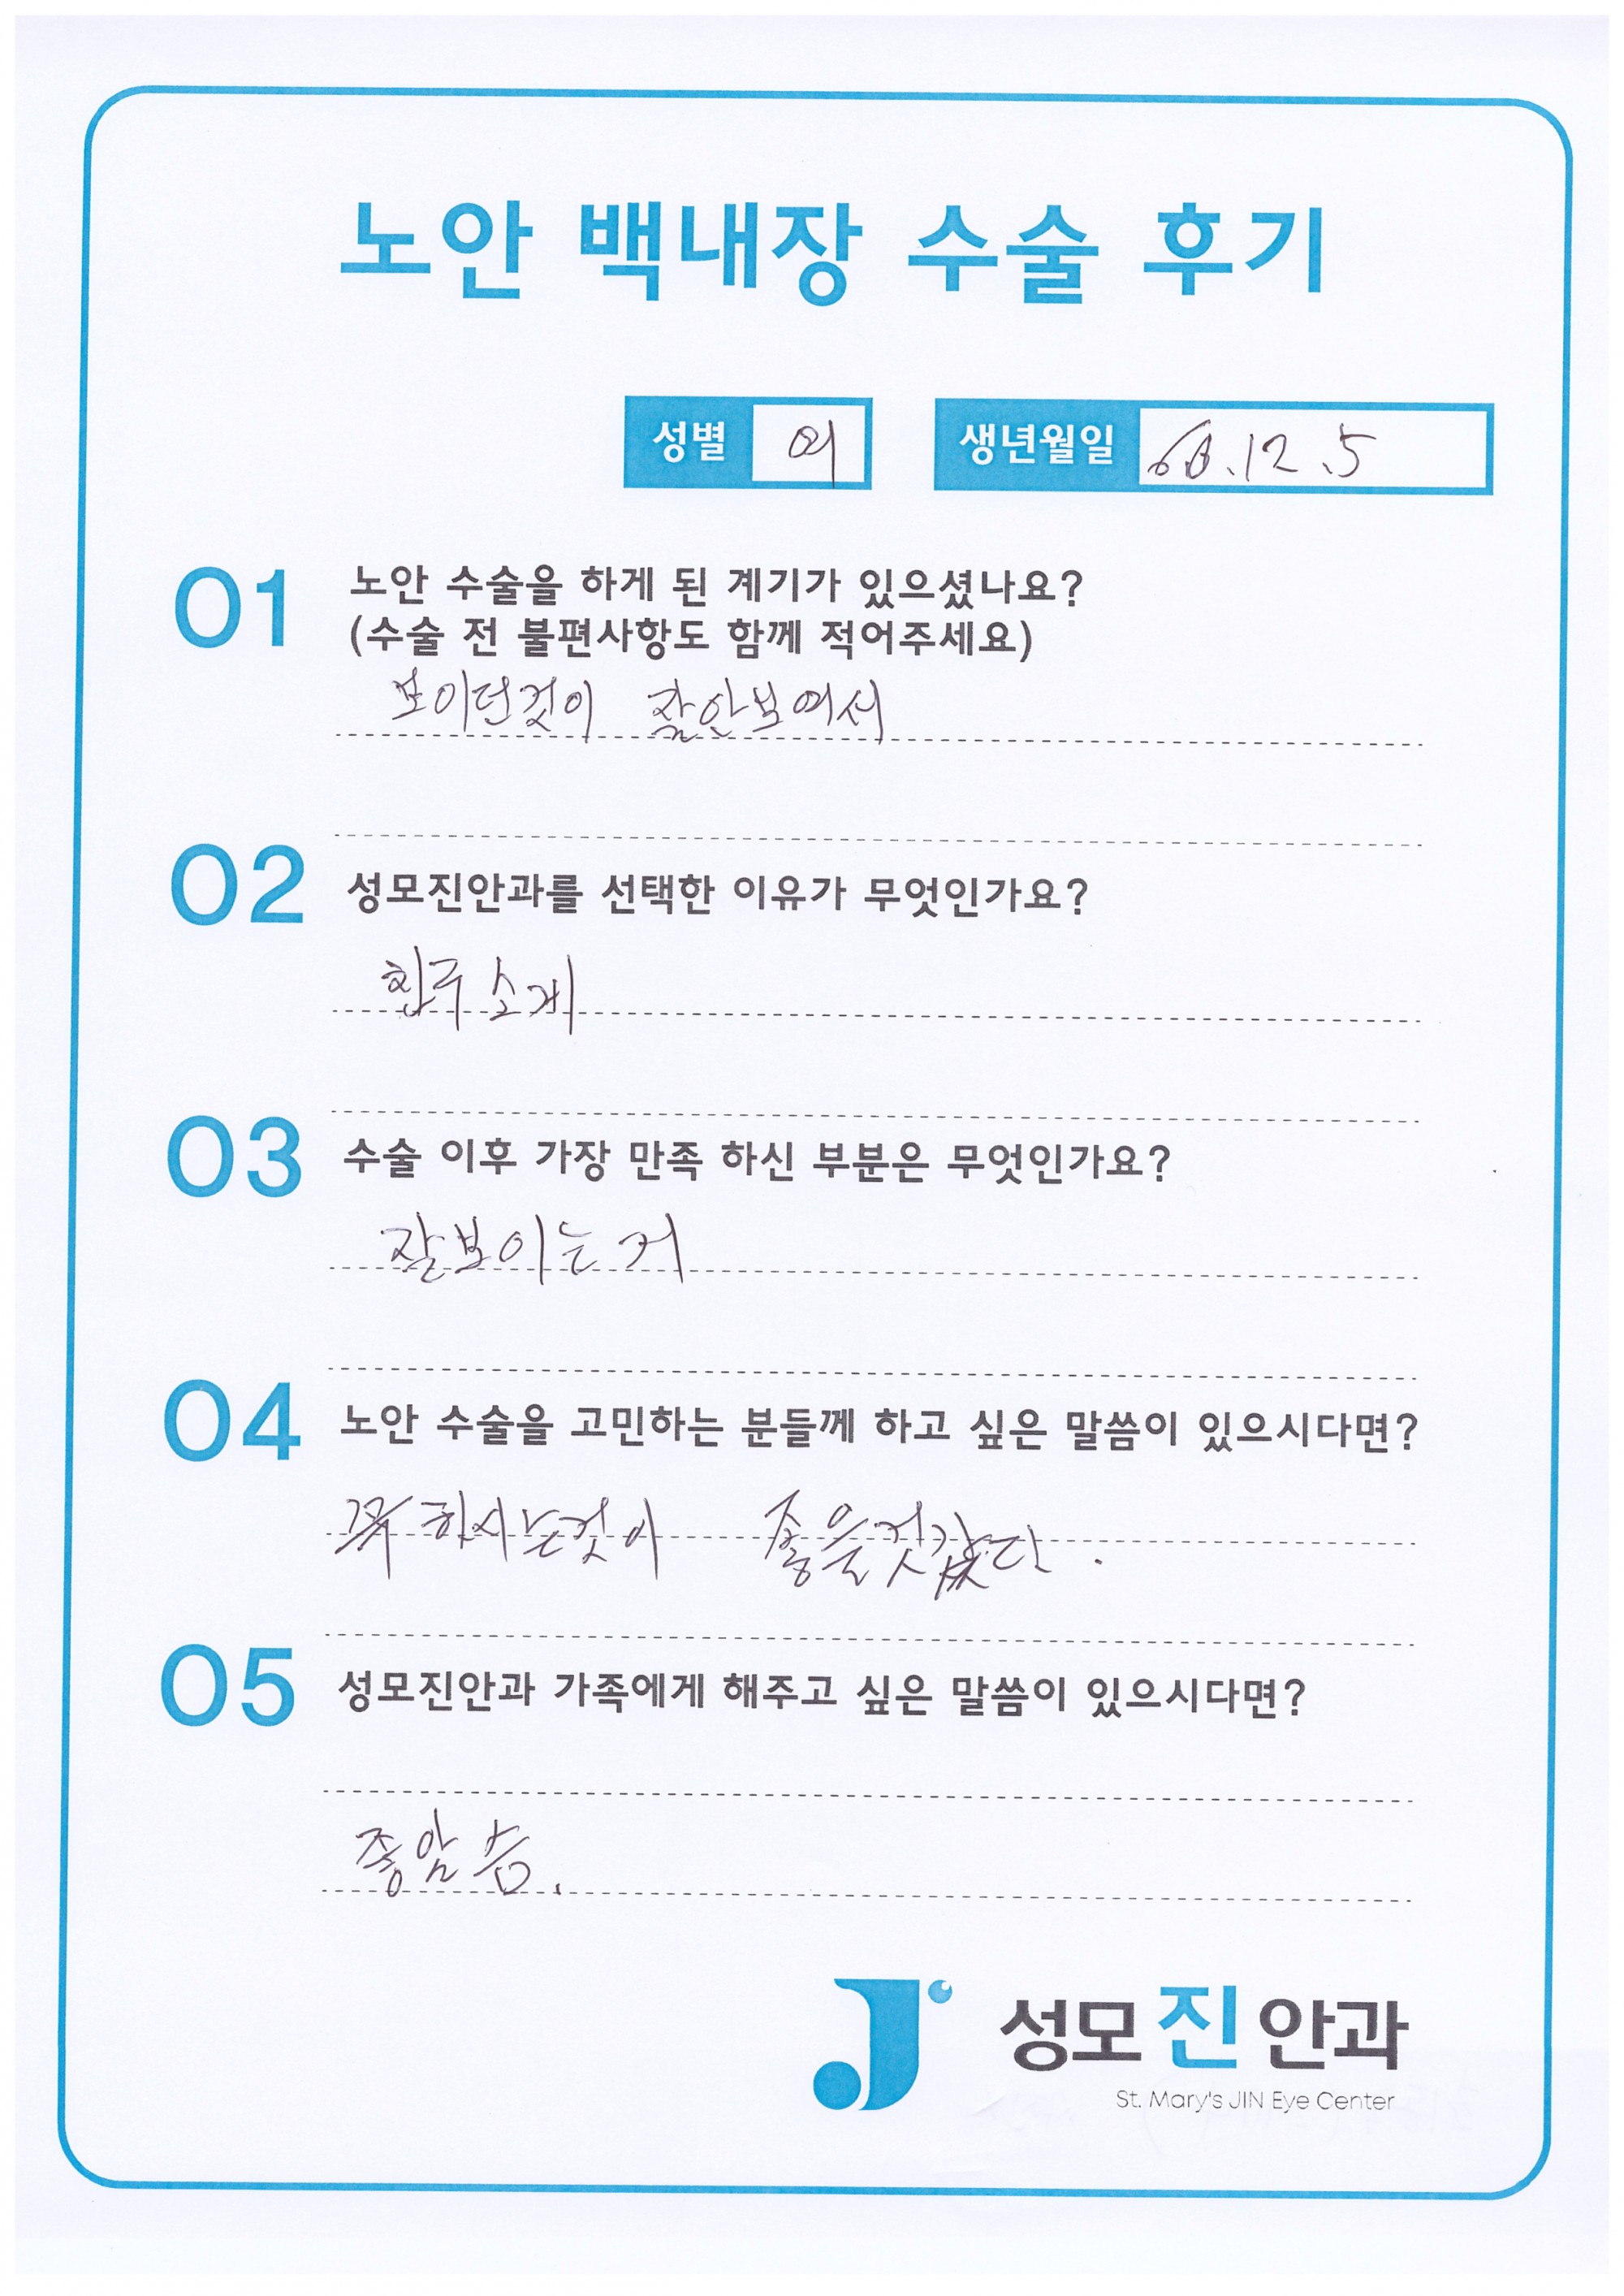 노안 백내장 수술 후기
성별 여 생년월일 60.12.5
01 노안 수술을 하게 된 계기가 있으셨나요?
(수술 전 불편사항도 함께 적어주세요)
보이던것이 잘안보여서
02 성모진안과를 선택한 이유가 무엇인가요?
친구 소개
03 수술 이후 가장 만족 하신 부분은 무엇인가요?
잘보이는거
04 노안 수술을 고민하는 분들께 하고 싶은 말씀이 있으시다면?
꼭 하시는것이 좋을것갔다.
05 성모진안과 가족에게 해주고 싶은 말씀이 있으시다면?
좋앗슴.
성모진안과
St. Mary's JIN Eye Center